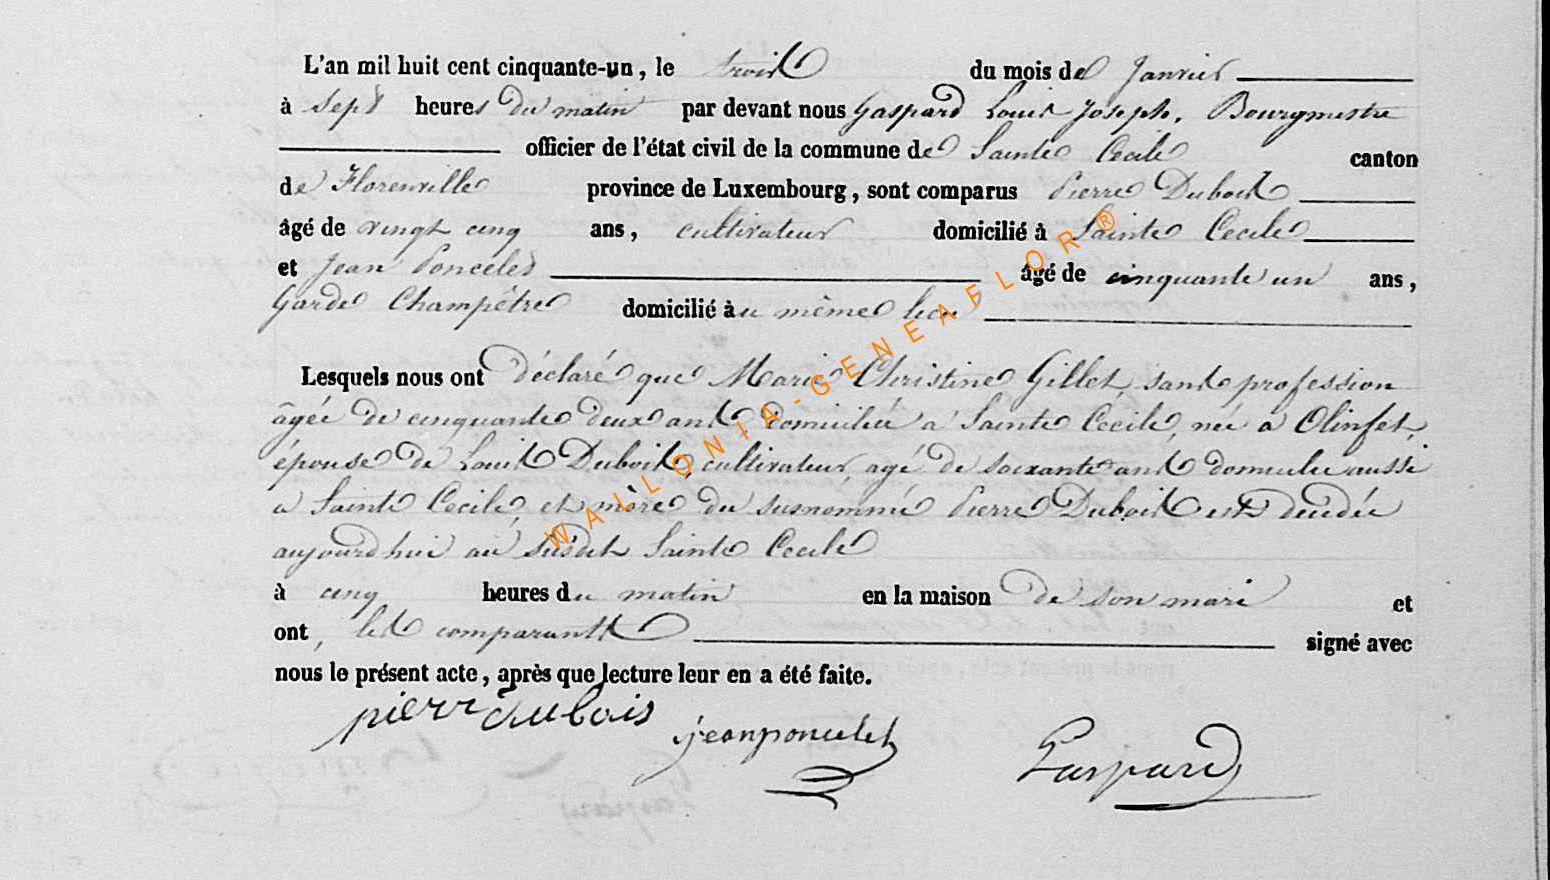 L'an mil huit cent cinquante-un, le trois du mois de Janvier
à Sept heures du matin par devant nous Gaspard Louis Joseph, Bourgmestre
officier de l'état civil de la commune de Sainte Cecile canton
de Florenville province de Luxembourg, sont comparus Pierre Dubois
âgé de vingt cinq ans, cultivateur domicilié à Sainte Cecile
et Jean Poncelet âgé de cinquante un ans,
Garde Champêtre domicilié au même lieu
Lesquels nous ont déclaré que Marie Christine Gillet, sans profession
âgée de cinquante deux ans domiciliée à Sainte Cécile, née à Olinfet,
épouse de Louis Dubois, cultivateur, agé de soixante ans domicilié aussi
a Sainte Cecile, et mère du susnommé Pierre Dubois est décédée
aujourd'hui au susdit Sainte Cecile
à cinq heures du matin en la maison de son mari et
ont, les comparants signé avec
nous le présent acte, après que lecture leur en a été faite.
pierr dubois jeanponcelet Gaspard
WALLONIA-GENEAFLOR®